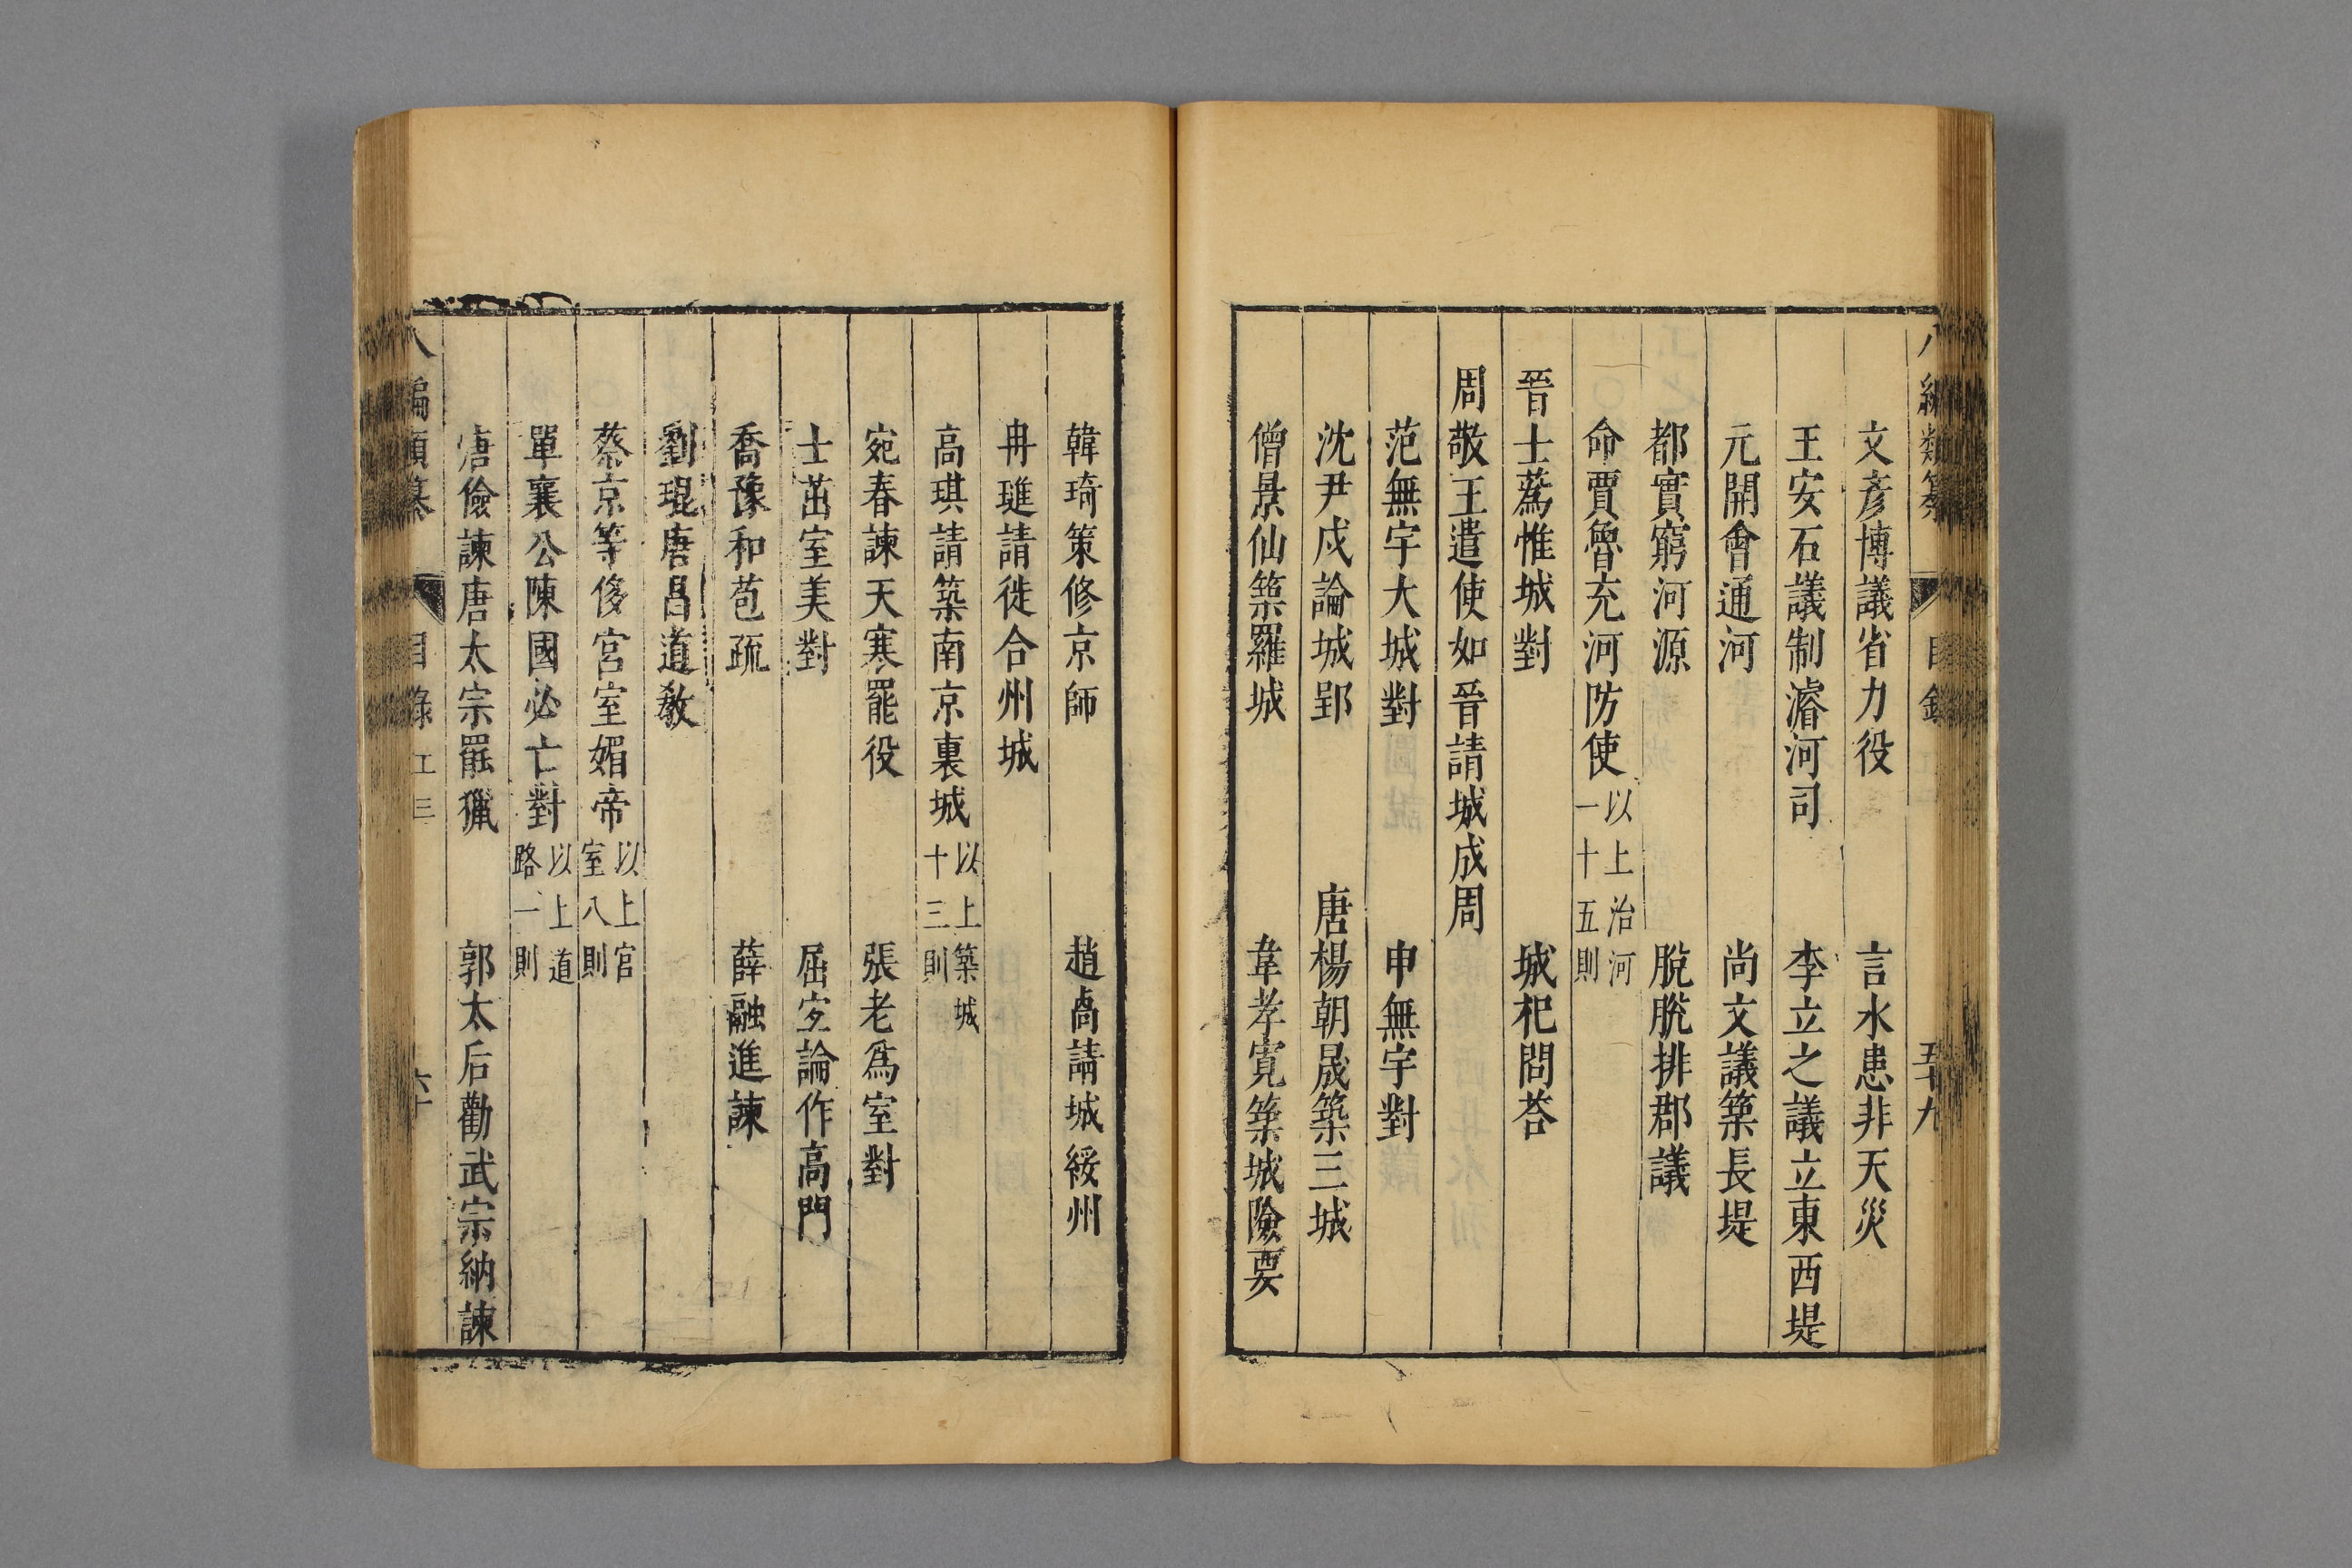 八編類纂 目錄 五十九
文彥博議省力役 言水患非天災
王安石議制濬河司 李立之議立東西堤
元開會通河 尚文議築長堤
都實窮河源 脫脫排郡議
命賈魯充河防使 以上治河一十五則
晉士蔿惟城對 城杞問荅
周敬王遣使如晉請城成周
范無宇大城對 申無宇對
沈尹戍論城郢 唐楊朝晟築三城
僧景仙築羅城 韋孝寬築城險要
韓琦策修京師 趙卨請城綏州
冉璡請徙合州城
高琪請築南京裏城 以上築城十三則
宛春諫天寒罷役 張老爲室對
士茁室美對 屈宐論作高門
喬豫和苞疏 薛融進諫
劉琨唐昌道敎
蔡京等侈宮室媚帝 以上宮室八則
單襄公陳國必亡對 以上道路一則
唐儉諫唐太宗罷獵 郭太后勸武宗納諫
八編類纂 目錄 工三 六十